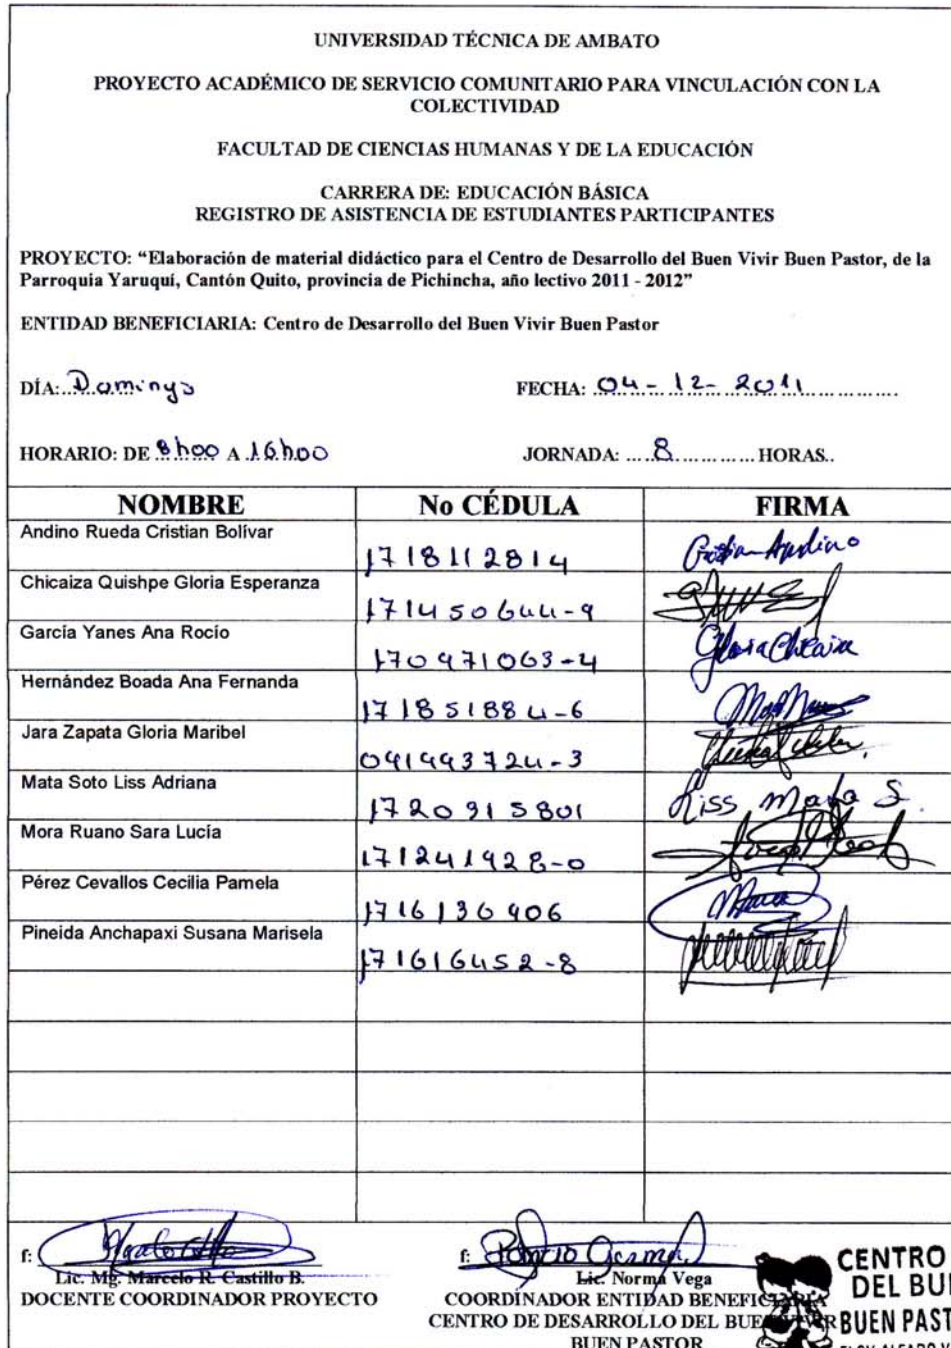 UNIVERSIDAD TÉCNICA DE AMBATO
PROYECTO ACADÉMICO DE SERVICIO COMUNITARIO PARA VINCULACIÓN CON LA
COLECTIVIDAD
FACULTAD DE CIENCIAS HUMANAS Y DE LA EDUCACIÓN
CARRERA DE: EDUCACIÓN BÁSICA
REGISTRO DE ASISTENCIA DE ESTUDIANTES PARTICIPANTES
PROYECTO: “Elaboración de material didáctico para el Centro de Desarrollo del Buen Vivir Buen Pastor, de la
Parroquia Yaruquí, Cantón Quito, provincia de Pichincha, año lectivo 2011 - 2012”
ENTIDAD BENEFICIARIA: Centro de Desarrollo del Buen Vivir Buen Pastor
DÍA: Domingo FECHA: 04-12-2011
HORARIO: DE 8h00 A 16h00 JORNADA: 8 HORAS..
NOMBRE No CÉDULA FIRMA
Andino Rueda Cristian Bolívar 1718112814 Cristian Andino
Chicaiza Quishpe Gloria Esperanza 171450644-9
García Yanes Ana Rocío 170971063-4 Gloria Chicaiza
Hernández Boada Ana Fernanda 171851884-6
Jara Zapata Gloria Maribel 091993724-3
Mata Soto Liss Adriana 1720915801 Liss Mata S.
Mora Ruano Sara Lucía 171241928-0
Pérez Cevallos Cecilia Pamela 1716136906
Pineida Anchapaxi Susana Marisela 171616452-8
f: f:
Lic. Mg. Marcelo R. Castillo B. Lic. Norma Vega
DOCENTE COORDINADOR PROYECTO COORDINADOR ENTIDAD BENEFICIARIA
CENTRO DE DESARROLLO DEL BUEN VIVIR
BUEN PASTOR
CENTRO
DEL BUE
BUEN PAST